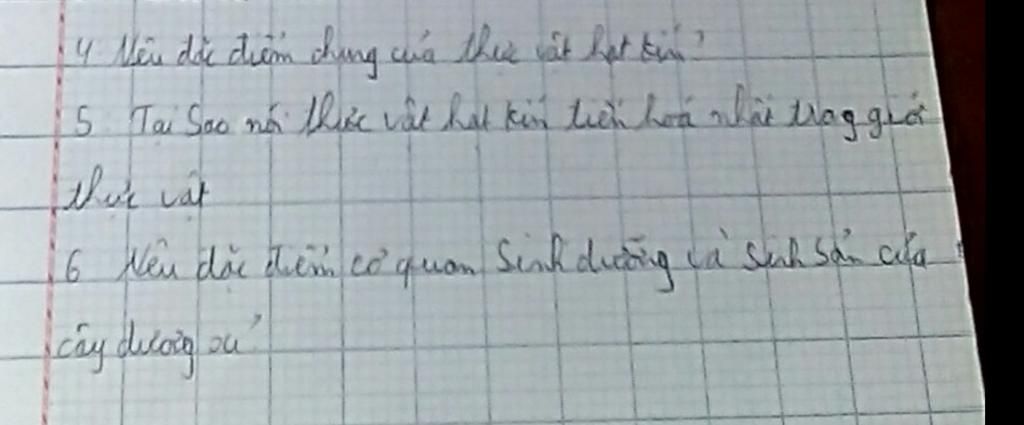 4 Nêu đặc điểm chung của thực vật hạt kín?
5 Tại Sao nói thực vật hạt kín tiến hoá nhất trong giới
thực vật
6 Nêu đặc điểm cơ quan Sinh dưỡng và sinh sản của
cây dương xỉ